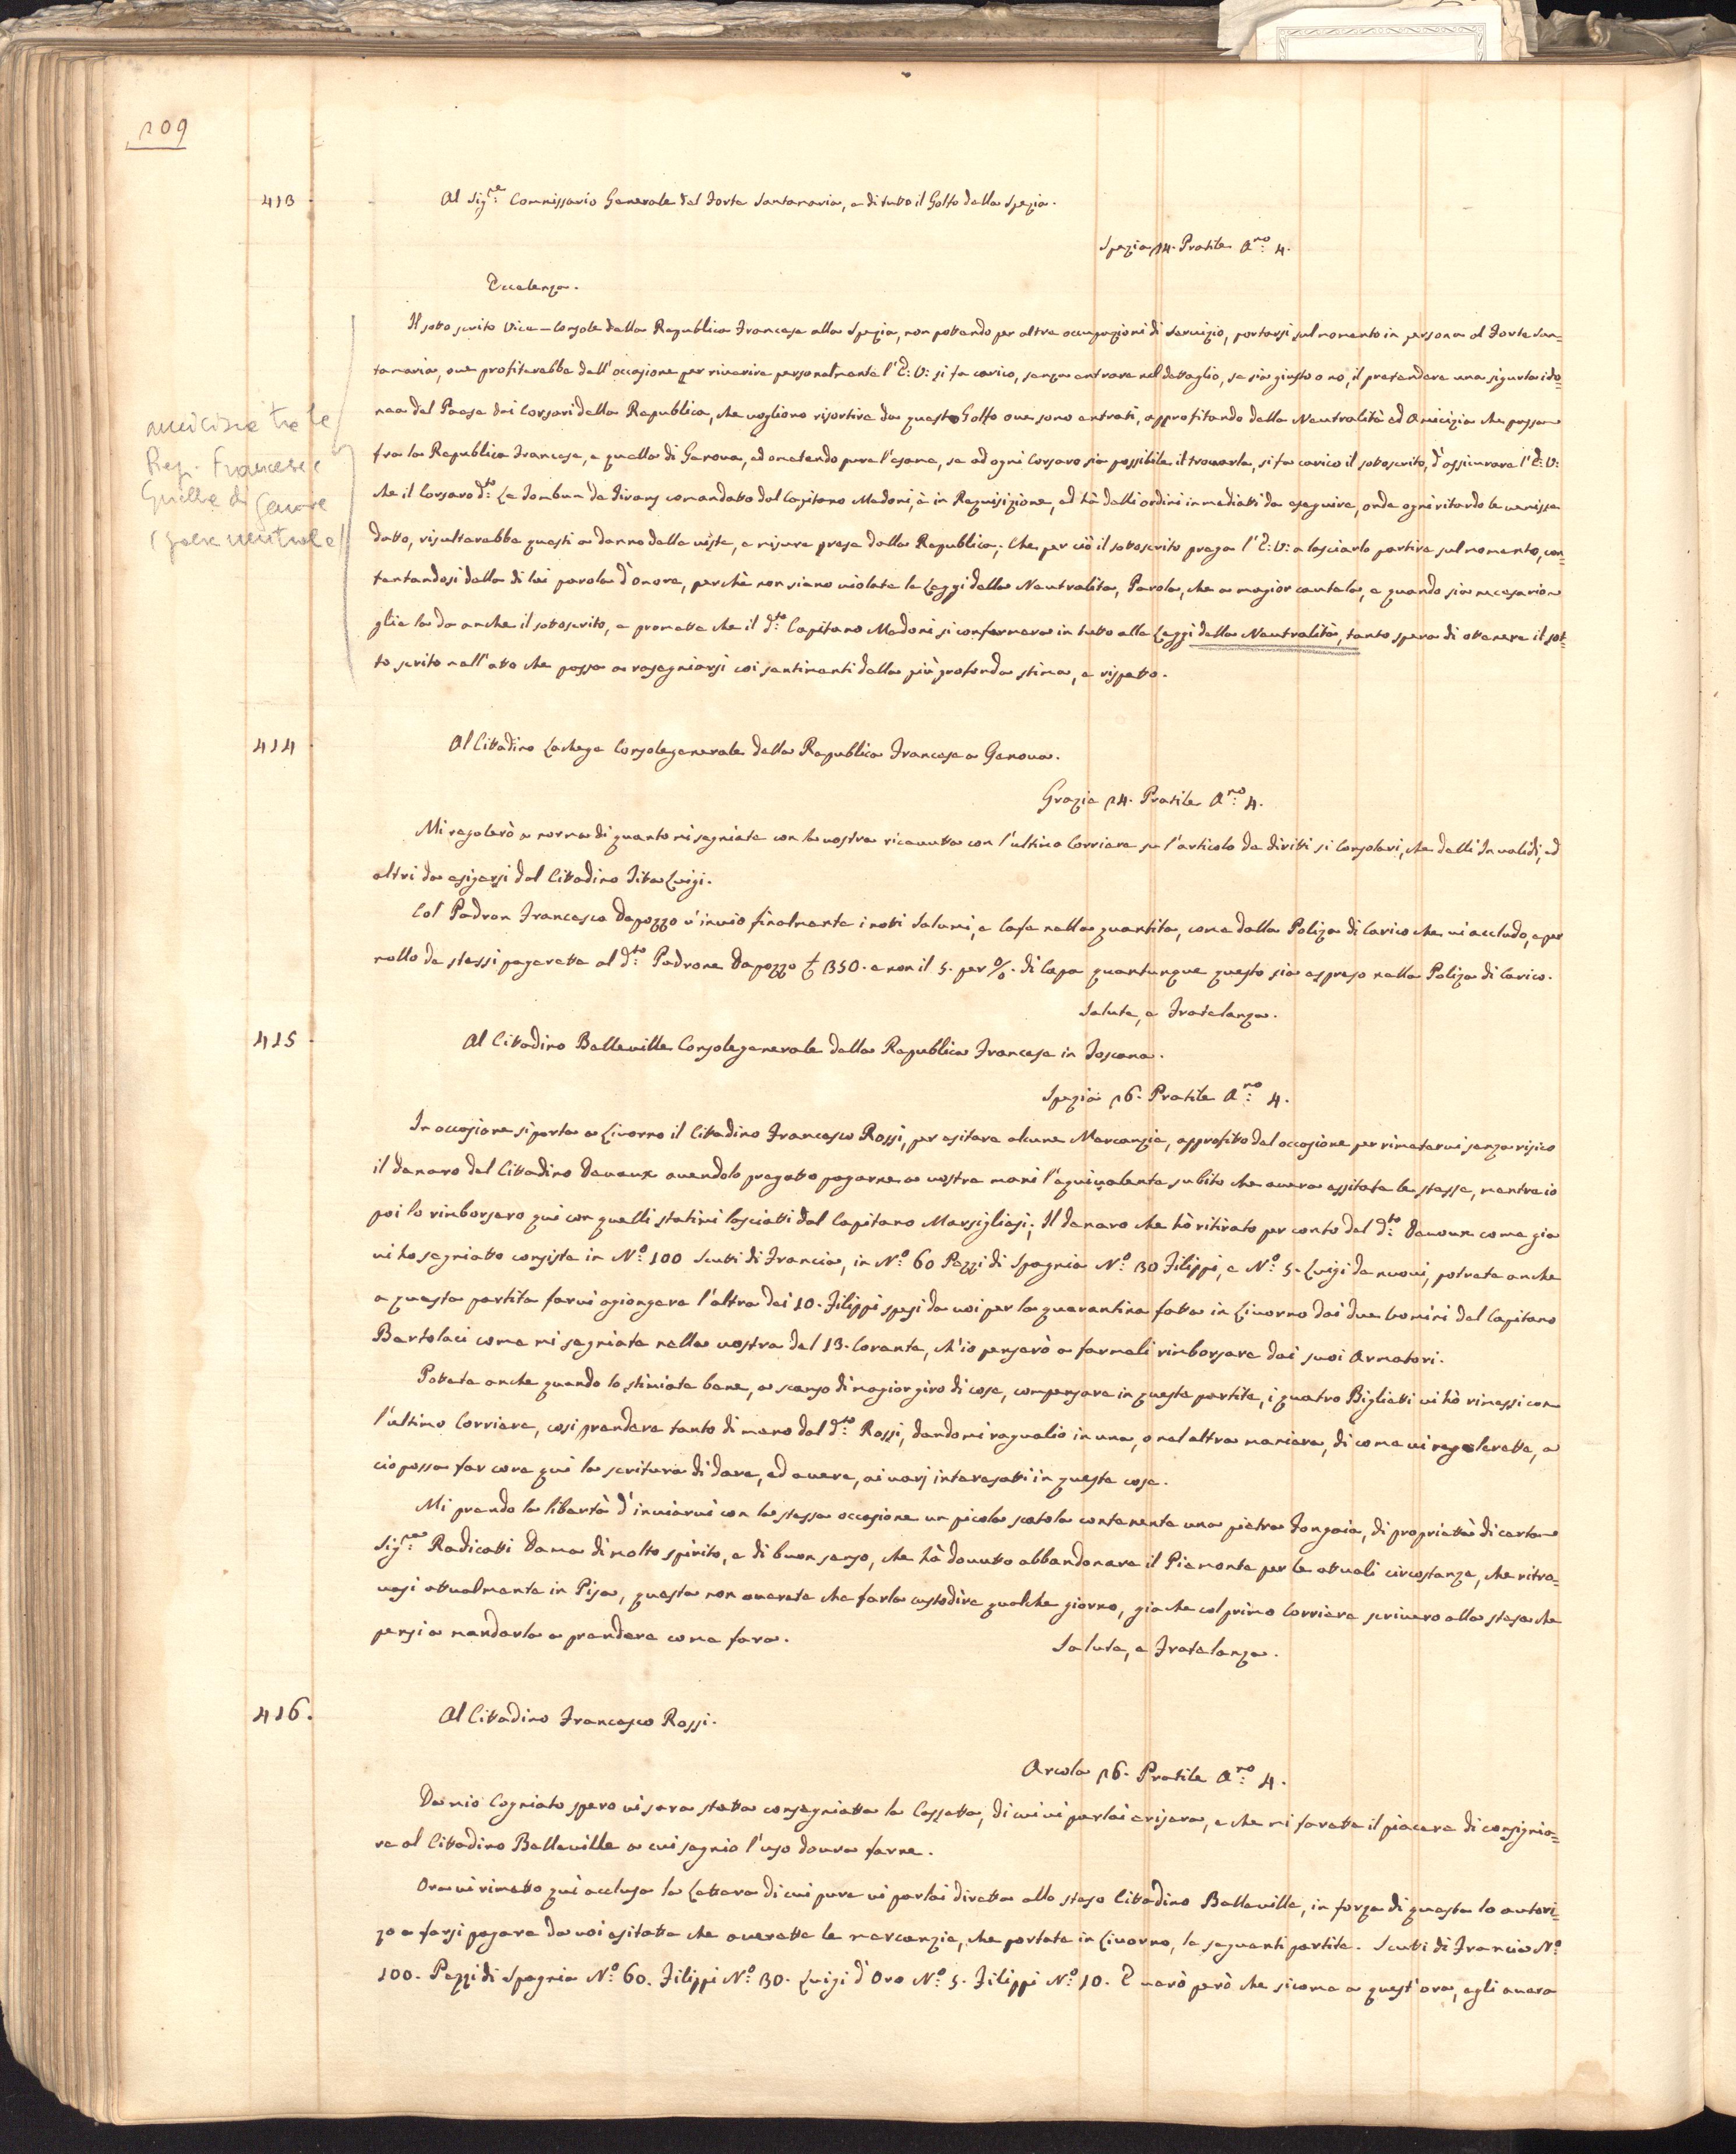 209
413 Al Sig.re Commissario Generale del Forte Santamaria, e di tutto il Golfo della Spezia.
Spezia 24. Pratile A.no 4.
Eccelenza.
Il sotto scrito Vice-Console della Republica Francese alla Spezia, non pottendo per altre occupazioni di Servizio, portarsi sul momento in persona al Forte San=
tamaria, ove profitterebbe dell'occasione per riverire personalmente l'E: V: si fa carico, senza entrare nel dettaglio, se sia giusto o no, il pretendere una sigurta ido=
nea del Paese dai Corsari della Republica, che vogliono risortire da questo Golfo ove sono entrati, approfitando della Neutralità ed Amicizia che passa
fra la Republica Francese, e quella di Genova, ed ometendo pure l'esame, se ad ogni Corsaro sia possibile il trovarla, si fa carico il sotoscrito, d'assicurare l'E: V:
che il Corsaro d.to Le Tombeur de Tirany comandatto dal Capitano Madoni, è in Requisizione, ed hà delli ordini inmediatti da eseguire, onde ogni ritardo le venisse
datto, risulterebbe questi a danno delle viste, e misure prese dalla Republica; Che per ciò il sotoscrito prega l'E: V: a lasciarlo partire sul momento, con=
tentandosi della di lui parola d'onore, perchè non siano violate le Leggi della Neutralita, Parola, che a magior cautela, e quando sia necesario
glie la da anche il sottoscrito, e promette che il d.to Capitano Madoni si confermera in tutto alle Leggi della Neutralità, tanto spera di ottenere il sot=
to scrito nell'atto che passa a rasegniarsi coi sentimenti della più profonda stima, e rispetto.
amicizia tra le
Rep. Francese e
Quelle di Genova
(paese neutrale)
414 Al Cittadino Lachege Consolegenerale della Republica Francese a Genova.
Grazie 24. Pratile A.no 4.
Mi regolerò a norma di quanto mi segniate con la vostra ricevutta con l'ultimo Corriere su l'articolo de diritti si Consolari, che delli Invalidi, ed
altri da esigersi dal Cittadino Tita Luigi.
Col Padron Francesco Dapozzo v'invio finalmente i noti Salumi, e Cafe nella quantita, come dalla Poliza di Carico che vi accludo, e per
nollo de stessi pagarette al d.to Padrone Dapozzo £ 350. e non il 5. per %. di Capa quantunque questo sia espreso nella Poliza di Carico.
Salute, e Fratelanza.
415 Al Cittadino Belleville Consolegenerale della Republica Francese in Toscana.
Spezia 26. Pratile A.no 4.
In occasione si porta a Livorno il Cittadino Francesco Rossi, per esitare alcune Mercanzie, approfitto del occasione per rimetervi senza risico
il denaro del Cittadino Devaux avendolo pregatto pagarne a vostre mani l'equivalente subito che avera essitate le stesse, mentre io
poi lo rimborsero qui con quelli statimi lasciatti dal Capitano Marsigliesi; Il denaro che hò ritirato per conto del d.to Devoux come gia
vi ho segniatto consiste in N.o 100 Scutti di Francia, in N.o 60 Pezzi di Spagnia N.o 30 Filippi, e N.o 5. Luigi da nuovi, potrete anche
a questa partita farvi agiongere l'altra dei 10. Filippi spesi da voi per la quarantina fatta in Livorno dai due Uomini del Capitano
Bartolaci come mi segniate nella vostra del 13. Corente, ch'io penserò a farmeli rimborsare dai suoi Armatori.
Potete anche quando lo stimiate bene, a scanso di magior giro di cose, compensare in queste partite, i quatro Biglietti vi hò rimessi con
l'ultimo Corriere, cosi prendere tanto di meno dal d.to Rossi, dandomi raqualio in una, o nel altra maniera, di come vi regolerette, a
cio possa far core qui la scritura di dare, ed avere, ai varj interesatti in queste cose.
Mi prendo la libertà d'inviarvi con la stessa occasione un picola scatola contenente una pietra Fongaia, di proprietà di certa
Sig.ra Radicatti Dama di molto spirito, e di buon senso, che hà dovutto abbandonare il Piemonte per le attuali circostanze, che ritro=
vasi attualmente in Pisa, questa non averete che farla custodire qualche giorno, gia che col primo Corriere scrivero alla stesa che
pensi a mandarla a prendere come fara.
Salute, e Fratelanza.
416. Al Cittadino Francesco Rossi.
Arcola 26. Pratile A.no 4.
Da mio Cogniato spero vi sara statta consegniatta la Cassetta, di cui vi parlai erisera, e che mi farette il piacere di consignia=
re al Cittadino Belleville a cui segnio l'uso dovra farne.
Ora vi rimetto qui acclusa la Lettera di cui pure vi parlai diretta allo steso Cittadino Belleville, in forza di questa lo autori=
zo a farsi pagare da voi esitatte che averette le mercanzie, che portate in Livorno, le seguenti partite. Scutti di Francia N.o
100. Pezzi di Spagnia N.o 60. Filippi N.o 30. Luigi d'Oro N.o 5. Filippi N.o 10. E verò però che sicome a quest'ora, egli avera